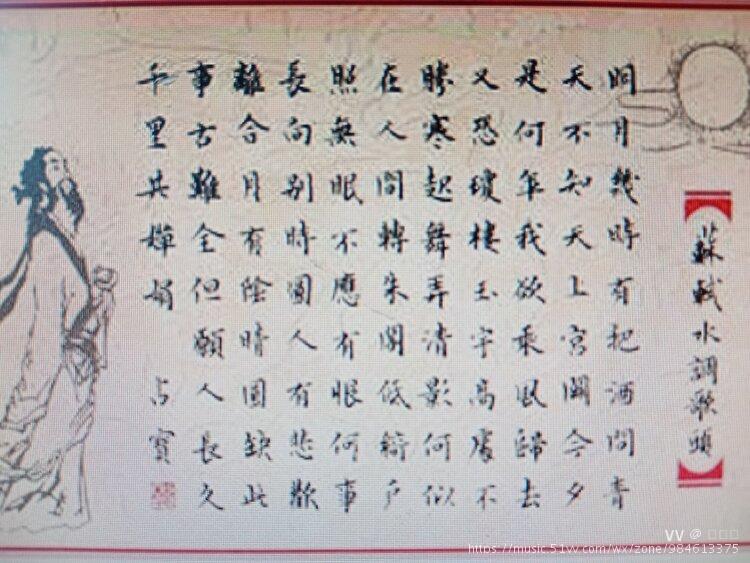 【蘇軾水調歌頭】
明月幾時有把酒問青
天不知天上宮闕今夕
是何年我欲乘風歸去
又恐瓊樓玉宇高處不
勝寒起舞弄清影何似
在人間轉朱閣低綺戶
照無眠不應有恨何事
長向別時圓人有悲歡
離合月有陰晴圓缺此
事古難全但願人長久
千里共嬋娟 占寶
VV @ □□□
https://music.51vv.com/wx/zone/984613375